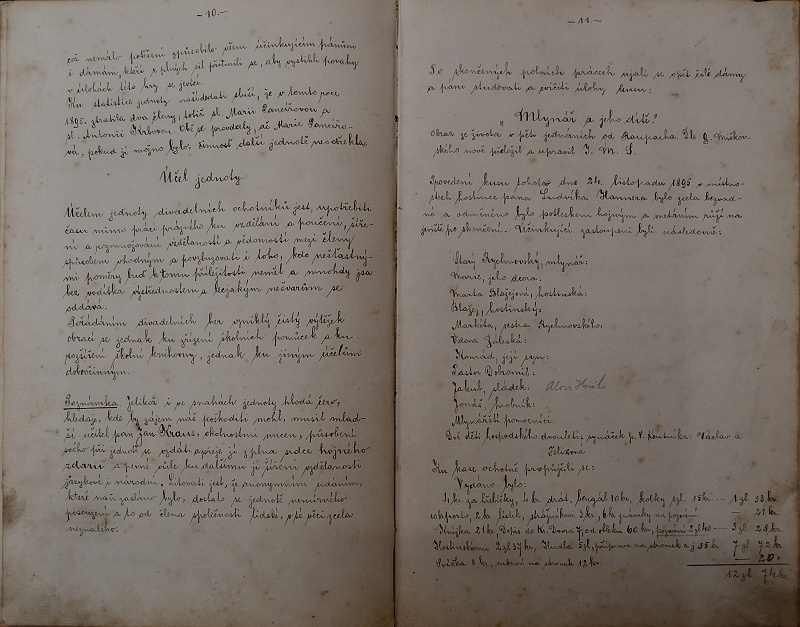 —10.—
což nemálo potěšení způsobilo všem účinkujícím pánům
i dámám, kteří z plných sil přičinili se, aby vystihli povahy
v úlohách této hry se jevící.
Ku statistice jednoty naší dodati sluší, že v tomto roce
1895. ztratila dva členy; totiž sl. Marii Pancířovou a
sl. Antonii Vrbovou. Obě se provdaly, ač Marie Pancířo-
vá, pokud jí možno bylo, činnost další jednotě neodřekla.
Účel jednoty.
Účelem jednoty divadelních ochotníků jest, upotřebiti
času mimo práci prázného ku vzdělání a poučení, šíře-
ní a rozmnožování vzdělanosti a vědomostí mezi členy
způsobem vhodným a povzbuzovati i toho, kdo nešťastný-
mi poměry buď k tomu příležitosti neměl a mnohdy jsa
bez vodítka výstřednostem a nejakým nešvarům se
oddává.
Pořádáním divadelních her vzniklý čistý výtěžek
obrací se jednak ku zřízení školních pomůcek a ku
rozšíření školní knihovny, jednak ku jiným účelům
dobročinným.
Poznámka. Jelikož i ve snahách jednoty hlodá červ,
hledaje, kde by zájem náš poškoditi mohl, musil mlad-
ší učitel pan Jan Kraus, okolnostmi nucen, působení
svého při jednotě se vzdáti a přeje jí z plna srdce hojného
zdaru a pevné vůle ku dalšímu jí šíření vzdělanosti
jazykové i národní. Litovati jest, že anonymním udáním,
které naň zasláno bylo, dostalo se jednotě nemírného
posouzení a to od člena společnosti lidské, o té věci zcela
neznalého.
—11.—
Po skončených polních pracech ujali se opět čilé dámy
a páni studovati a cvičiti úlohy kusu:
„Mlynář a jeho dítě."
Obraz ze života v pěti jednáních od Raupacha. Dle G. Miškov-
ského nově přeložil a upravil J. M. S.
Provedení kusu tohoto dne 24. listopadu 1895 v místno-
stech hostince pana Ludvíka Hannera bylo zcela bezvad-
né a odměněno bylo potleskem hojným a metáním růží na
jeviště po skončení. Účinkující zastoupeni byli následovně:
Starý Rychnovský, mlynář:
Marie, jeho dcera:
Marta Blažejová, hostinská:
Blažej, hostinský:
Markéta, sestra Rychnovského:
Vdova Jílská:
Konrád, její syn:
Pastor Dobromil:
Jakub, sládek: Alois
Jonáš, hrobník:
Mlynářští pomocníci:
Dvě děti hospodského dvouletí: synáček p. V. Koutníka: Václav a
Ku kase ochotně propůjčili se:
Vydáno bylo:
4 kr. za hřebíčky, 4 kr. drát, bengál 10 kr, kolky 1 zl. 15 kr. --- 1 zl 33 kr.
10 kr porto, 2 kr. lístek, strážníkovi 3 kr, 6 kr známky na pozvání --- 21 kr.
Knížka 21 kr, 60 kr, pozvání 2 zl 40 --- 3 zl 28 kr.
Hostinskému 2 zl 37 kr, Hudba 5 zl, příprava na stromek a j 35 kr 7 zl 72 kr.
Svíčka 8 kr, cukroví na stromek 12 kr. — 20 "
12 zl 74 kr